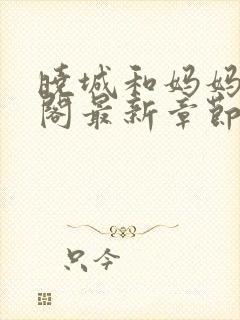 晓城和妈妈
阁最新章节
只今